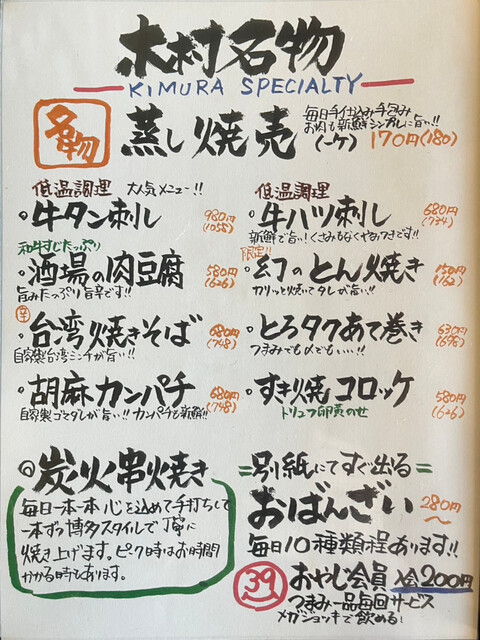 木村名物
KIMURA SPECIALTY
名物
蒸し焼売
(一ケ)
毎日手仕込み手包み
お肉も新鮮シンプルに旨い!!
170円(180)
低温調理 大人気メニュー!!
牛タン刺し 980円
(1058)
低温調理
牛ハツ刺し 680円
(734)
新鮮で旨い!くさみもなくやみつきです!!
和牛すじたっぷり
酒場の肉豆腐 580円
(626)
旨みたっぷり旨辛です!!
限定!!
幻のとん焼き 150円
(162)
カリッと焼いてタレが旨い!!
辛
台湾焼きそば 680円
(748)
自家製台湾ミンチが旨い!!
とろタクあて巻き 630円
(698)
つまみでも〆でもいい!!
胡麻カンパチ 680円
(748)
自家製ゴマダレが旨い!!カンパチも新鮮!!
すき焼コロッケ 580円
(626)
トリュフ卵黄のせ
炭火串焼き
毎日一本一本心を込めて手打ちして
一本ずつ博多スタイルで丁寧に
焼き上げます。ピーク時はお時間
かかる時もあります。
別紙にてすぐ出る
おばんざい 280円~
毎日10種類程あります!!
39
おやじ会員 入会200円
つまみ一品毎回サービス
メガジョッキで飲める!